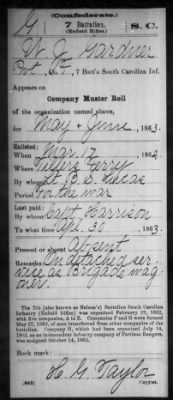 (Confederate.)
G 7 Battalion, S. C.
(Enfield Rifles)
W. J. Gardner
Pvt, Co. F, 7 Batt'n South Carolina Inf.
Appears on
Company Muster Roll
of the organization named above,
for May & June, 1863.
Enlisted:
When Mar 17, 1862
Where Ferry
By whom Lt. B. S. Lucas
Period for the war
Last paid:
By whom Capt Harrison
To what time Apr. 30, 1863.
Present or absent Absent
Remarks: On detached ser-
vice as Brigade wag-
oner.
The 7th (also known as Nelson's) Battalion South Carolina
Infantry (Enfield Rifles) was organized February 22, 1862,
with five companies, A to E. Companies F and G were formed
May 27, 1862, of men transferred from other companies of the
battalion. Company H, which had been organized July 14,
1862, as an independent company of Partisan Rangers,
was assigned October 14, 1862.
Book mark:
H. G. Taylor
(642) Copyist.